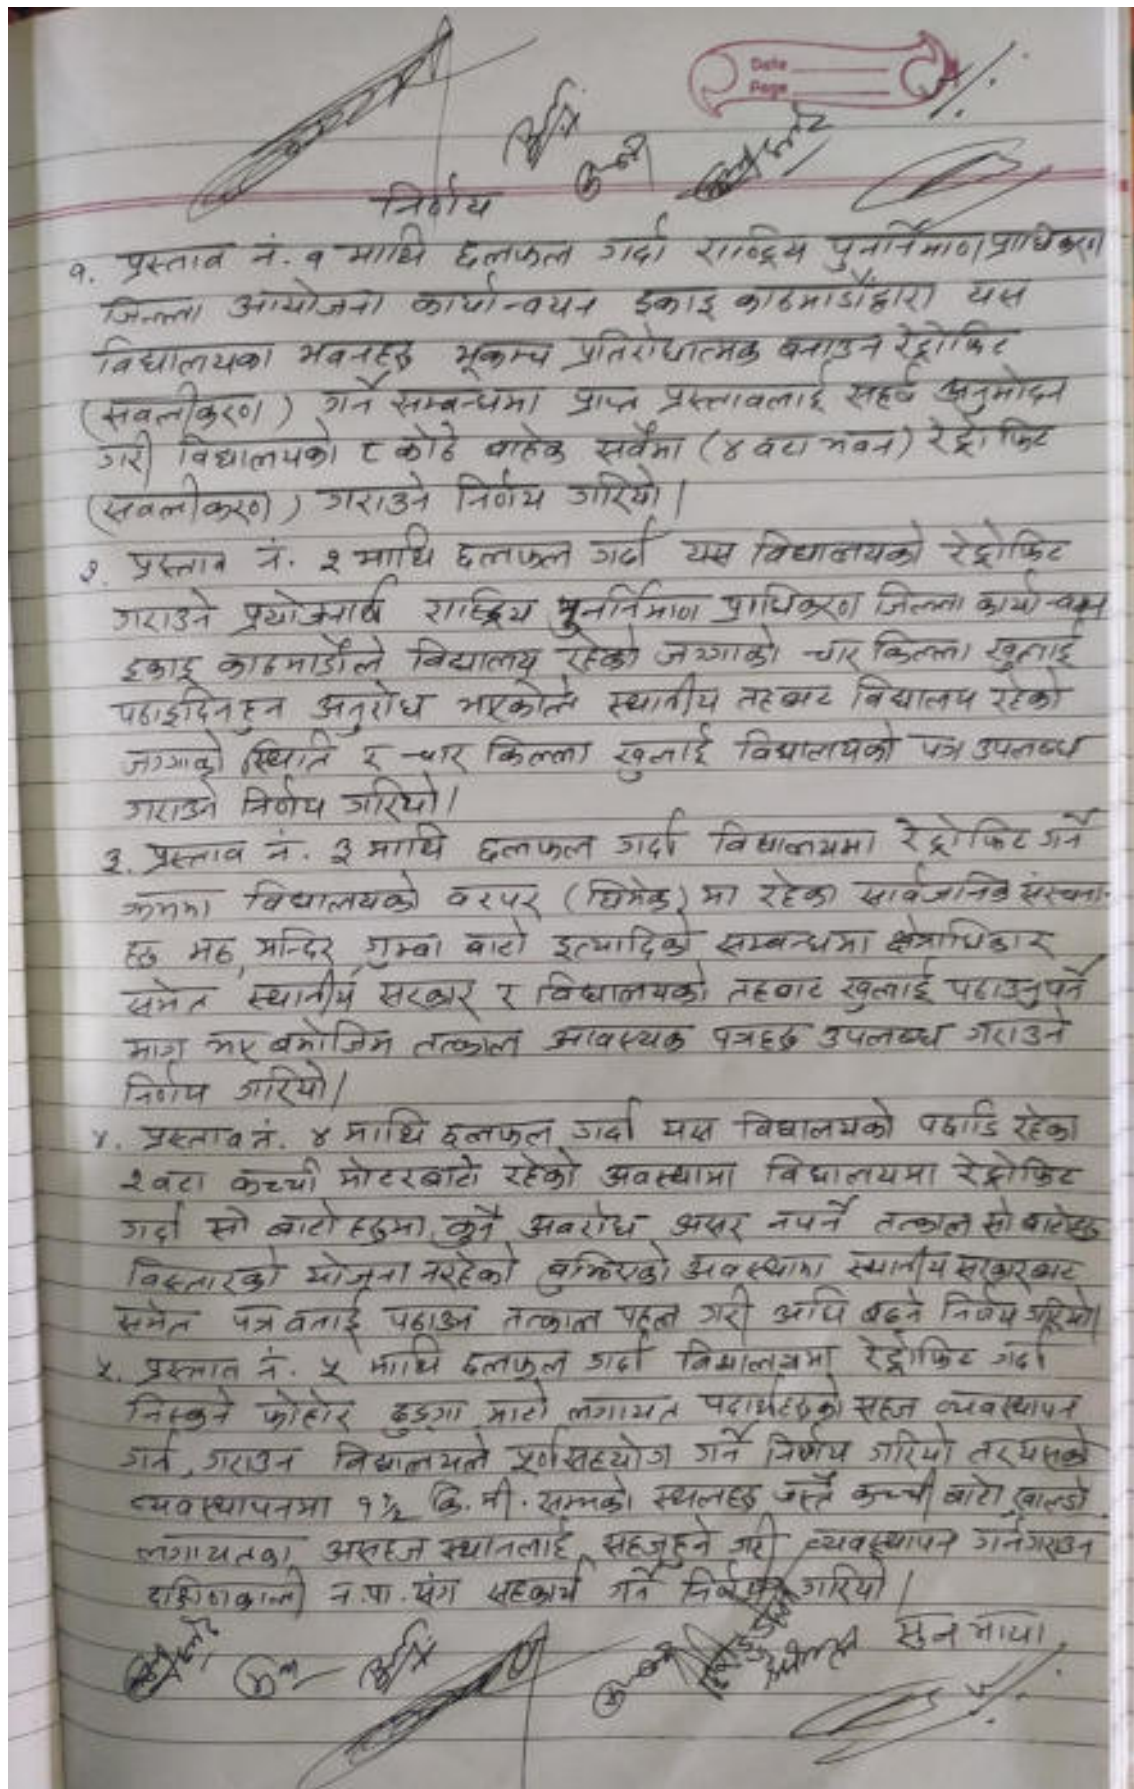 Date
Page
निर्णय
१. प्रस्ताव नं. १ माथि छलफल गर्दा राष्ट्रिय पुनर्निमाण प्राधिकरण
जिल्ला आयोजना कार्यान्वयन इकाइ काठमाडौंद्वारा यस
विद्यालयका भवनहरु भूकम्प प्रतिरोधात्मक बनाउन रेट्रोफिट
(सवलीकरण) गर्ने सम्बन्धमा प्राप्त प्रस्तावलाई सहर्ष अनुमोदन
गरी विद्यालयको ८ कोठे वाहेक सवैमा (४ वटा भवन) रेट्रोफिट
(सवलीकरण) गराउने निर्णय गरियो।
२. प्रस्ताव नं. २ माथि छलफल गर्दा यस विद्यालयको रेट्रोफिट
गराउने प्रयोजनार्थ राष्ट्रिय पुनर्निमाण प्राधिकरण जिल्ला कार्यान्वयन
इकाइ काठमाडौंले विद्यालय रहेको जग्गाको चार किल्ला खुलाई
पठाइदिनहुन अनुरोध भएकोले स्थानीय तहबाट विद्यालय रहेको
जग्गाको स्थिति र चार किल्ला खुलाई विद्यालयको पत्र उपलब्ध
गराउने निर्णय गरियो।
३. प्रस्ताव नं. ३ माथि छलफल गर्दा विद्यालयमा रेट्रोफिट गर्ने
क्रममा विद्यालयको वरपर (छिमेक) मा रहेका सार्वजानिक संस्थाना-
हरु मठ, मन्दिर, गुम्बा बाटो इत्यादिको सम्बन्धमा क्षेत्राधिकार
समेत स्थानीय सरकार र विद्यालयको तहवाट खुलाई पठाउनुपर्ने
माग भए बमोजिम तत्काल आवश्यक पत्रहरु उपलब्ध गराउने
निर्णय गरियो।
४. प्रस्ताव नं. ४ माथि छलफल गर्दा यस विद्यालयको पछाडि रहेका
२ वटा कच्ची मोटरबाटो रहेको अवस्थामा विद्यालयमा रेट्रोफिट
गर्दा सो बाटोहरुमा कुनै अवरोध असर नपर्ने तत्काल सो बाटोहरु
विस्तारको योजना नरहेको बुझिएको अवस्थामा स्थानीय सरकारबाट
समेत पत्र वनाई पठाउन तत्काल पहल गरी अघि बढ्ने निर्णय गरियो।
५. प्रस्ताव नं. ५ माथि छलफल गर्दा विद्यालयमा रेट्रोफिट गर्दा
निस्कने फोहोर ढुङ्गा माटो लगायत पदार्थहरुको सहज व्यवस्थापन
गर्न, गराउन विद्यालयले पूर्ण सहयोग गर्ने निर्णय गरियो तर यसको
व्यवस्थापनमा १½ कि.मी. सम्मको स्थलहरु जस्तै कच्ची बाटो, खाल्डो
लगायतका असहज स्थानलाई सहजहुने गरी व्यवस्थापन गर्न गराउन
दक्षिणकाली न.पा. संग सहकार्य गर्ने निर्णय गरियो।
सुन माया